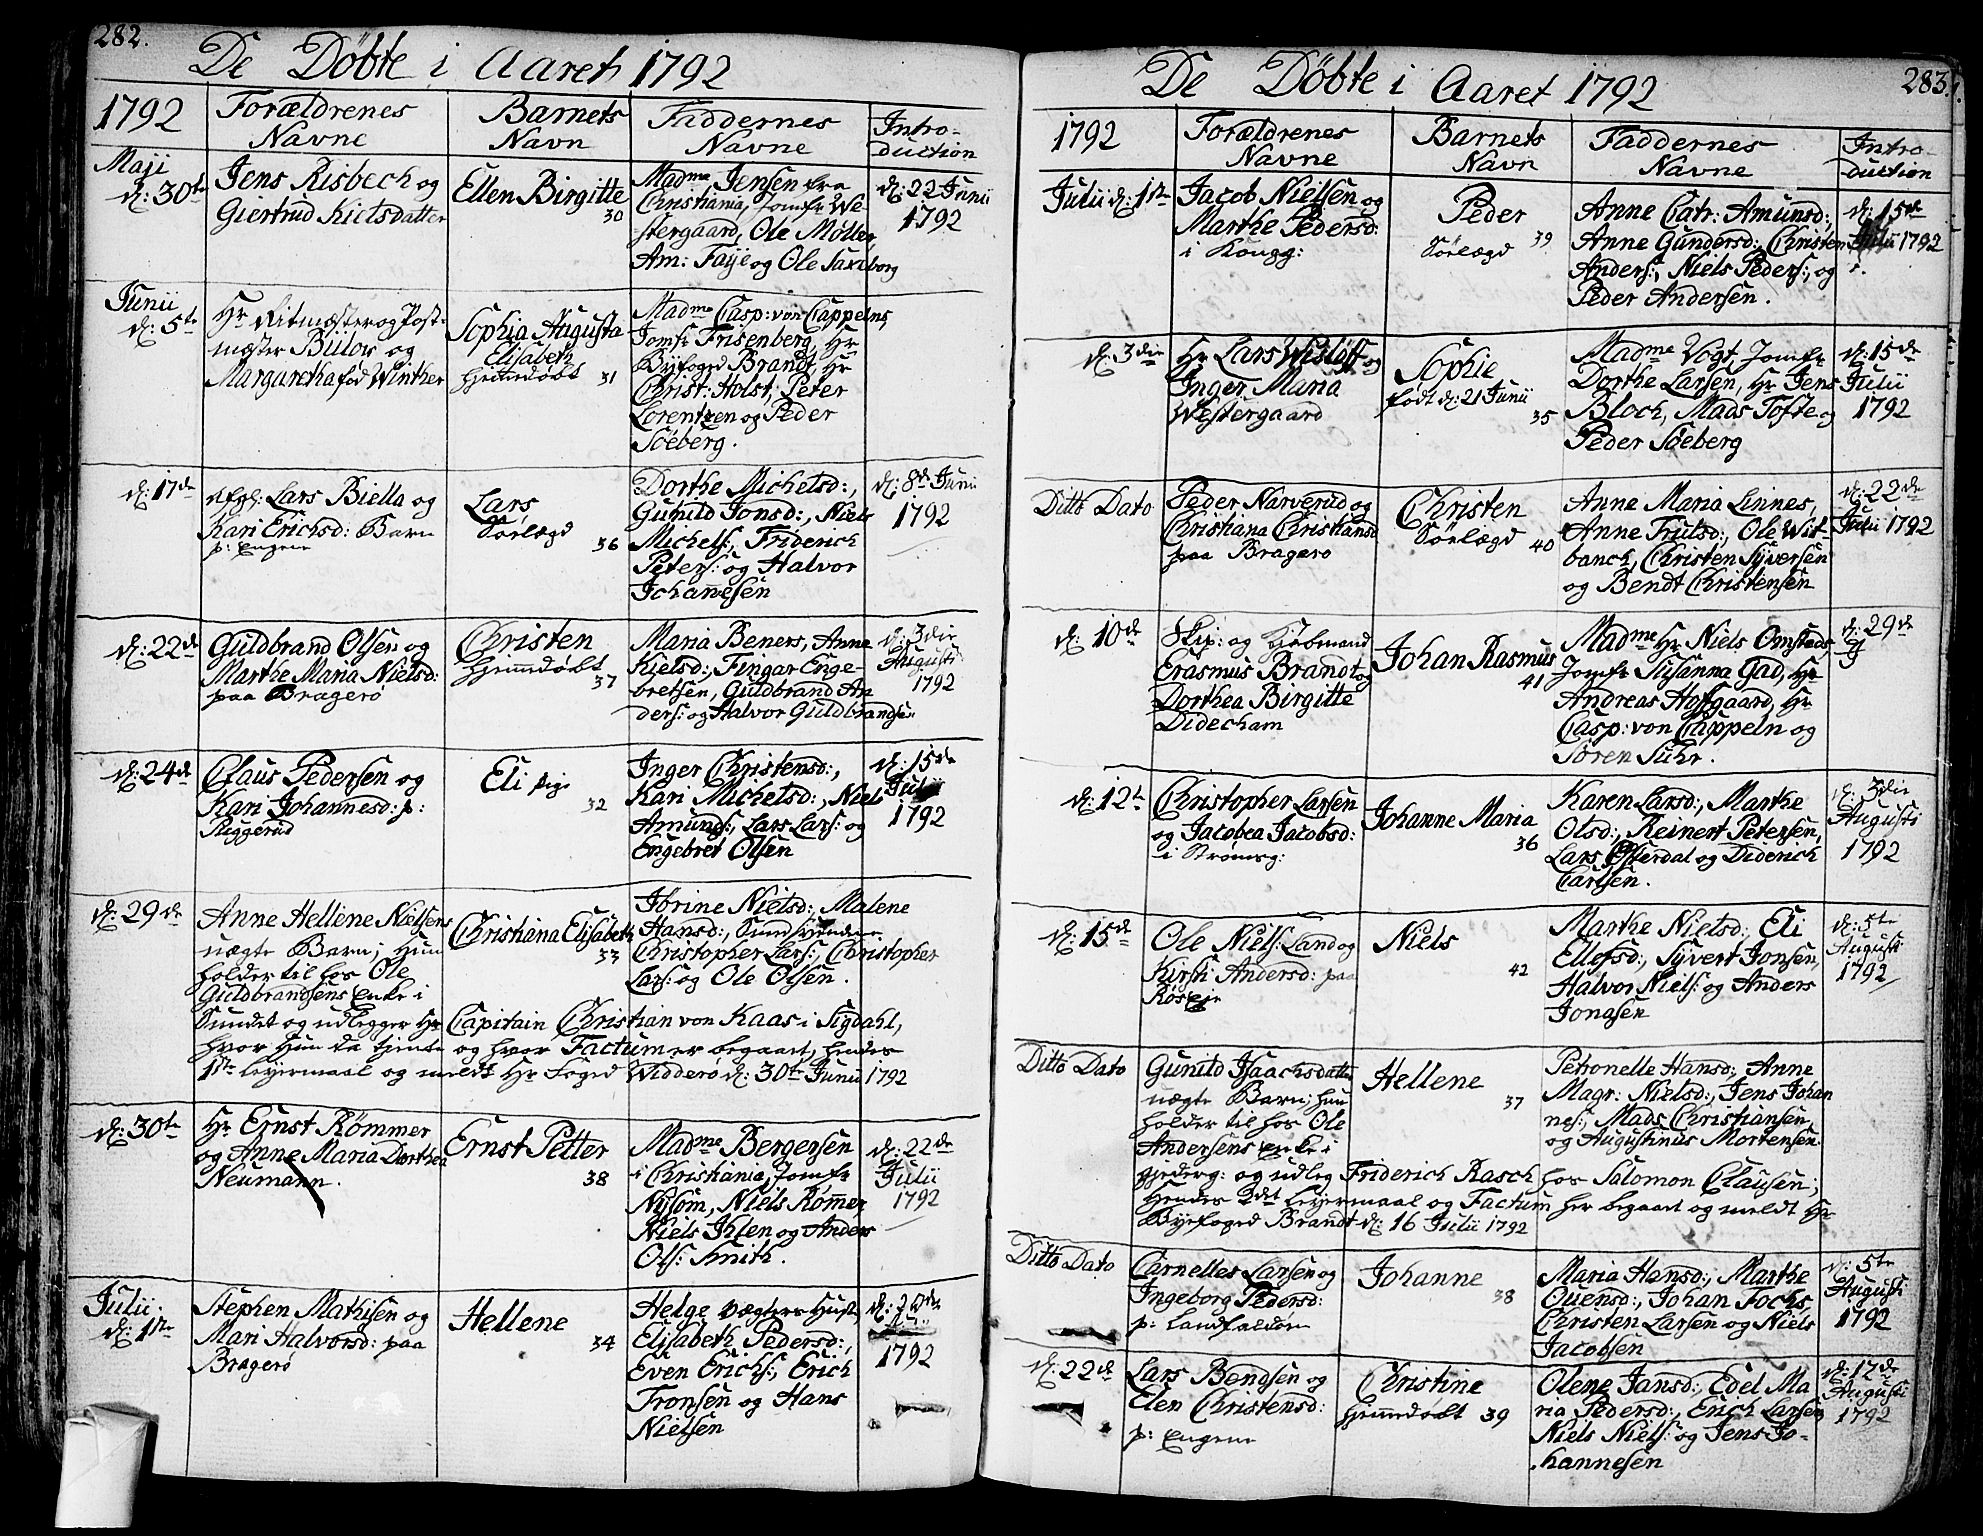 282.
De Döbte i Aaret 1792
1792
Forældrenes Navne
Barnets Navn
Faddernes Navne
Intro-
duction
Maji
d: 30te
Jens Risbech og
Giertrud Kielsdatter
Ellen Birgitte
30
Madme Jensen fra
Christiania, Jomfr We-
stergaard, Ole Möller,
Am: Faÿe og Ole Saxeborg
d: 22 Junii
1792
Junii
d: 5te
Hr Ritmæster og Post-
mæster Bülow og
Margaretha fød Winther
Sophia Augusta
Elisabeth
Hiemdöbt 31
Madme Casp: von Cappelns,
Jomfr Frisenberg, Hr
Byefoged Brandt, Hr
Christ: Holst, Peter
Lorentzen og Peder
Söeberg.
d: 17de
Afgl: Lars Biella og
Kari Erichsd: Barn
p: Engene
Lars
Sörlægd
36
Dorthe Michelsd:,
Gunild Jonsd:, Niels
Michels:, Friderich
Peters: og Halvor
Johannesen
d: 8de Junii
1792
d: 22de
Guldbrand Olsen og
Marthe Maria Nielsd:
paa Bragerö
Christen
Hiemdöbt
37
Maria Beners, Anne
Kielsd:, Fingar Enge-
bretsen, Guldbrand An
ders: og Halvor Guldbrandsen
d: 3die
Augusti
1792
d: 24de
Claus Pedersen og
Kari Johannesd: p:
Ruggerud
Eli pige
32
Inger Christensd:,
Kari Michelsd:, Niels
Amunds:, Lars Lars: og
Engebret Olsen
d: 15de
Julii
1792
d: 29de
Anne Hellene Nielsens
uægte Barn; Hun
holder til hos Ole
Guldbrandsens enke i
Christiana Elisabeth
33
Jörine Nielsd:, Malene
Hansd:,
Christopher Lars:, Christopher
Lars: og Ole Olsen.
Sundet og udlegger Hr Capitain Christian von Kaas i Sigdahl,
hvor Hun da tjente og hvor Factum er begaaet, hendes
1ste Leÿermaal og meldt Hr Foged Widderö d: 30te Junii 1792
d: 30te
Hr Ernst Römmer
og Anne Maria Dorthea
Neumann.
Ernst Petter
38
Madme Bergersen
i Christiania, Jomfr
Nysom, Niels Römer,
Niels Ihlen og Anders
Ols: Smith.
d: 22de
Julii
1792
Julii
d: 1ste
Stephen Mathisen og
Mari Halvorsd: paa
Bragerö
Hellene
34
Helge Vægters Hust:,
Elisabeth Pedersd:,
Even Erichs:, Erich
Tronsen og Hans
Nielsen
d: 22de
1792
283.
De Döbte i Aaret 1792
1792
Forældrenes Navne
Barnets Navn
Faddernes Navne
Intro-
duction
Julii d: 1ste
Jacob Nielsen og
Marthe Pedersd:
i Kongg:
Peder
Sörlægd 39
Anne Catr: Amunds:,
Anne Gundersd:, Christen
Anders:, Niels Peders:, og
Peder Andersen.
d: 15de
Julii 1792
d: 3die
Hr Lars Wislöff og
Inger Maria
Westergaard
Sophie
födt d: 21 Junii
35
Madme Vogt, Jomfr
Dorthe Larsen, Hr Jens
Bloch, Mads Tofte og
Peder Söeberg
d: 15de
Julii
1792
Ditto Dato
Peder Narverud og
Christiana Christiansd
paa Bragerö
Christen
Sörlægd 40
Anne Maria Linnes,
Anne Trulsd:, Ole Wit-
banch, Christen Syversen
og Bendt Christensen
d: 22de
Julii 1792
d: 10de
Skip: og Kjöbmand
Erasmus Brandt og
Dorthea Birgitte
Didecham
Johan Rasmus
41
Madme Hr Niels Omsteds,
Jomfr Susanna Gad, Hr
Andreas Hofgaard, Hr
Casp: von Cappeln og
Sören Suhr.
d: 29de
J
d: 12te
Christopher Larsen
og Jacobea Jacobsd:
i Strömsg:
Johanne Maria
36
Karen Larsd:, Marthe
Olsd:, Reinert Petersen,
Lars Österdal og Diderich
Carlsen.
d: 3die
Augusti
1792
d: 15de
Ole Niels: Land og
Kirsti Andersd: paa
Röseje
Niels
42
Marthe Nielsd:, Eli
Ellefsd:, Syvert Jonsen,
Halvor Niels: og Anders
Jonasen
d: 5te
Augusti
1792
Ditto Dato
Gunild Isaachsdatters
uægte Barn; Hun
holder til hos Ole
Andersens enke i
Hellene
37
Petronelle Hansd:, Anne
Magr: Nielsd:, Jens Johan
nes:, Mads Christiansen,
og Augustinus Mortensen
gjederg: og udleg Friderich Rasch hos Salomon Clausen;
Hendes 2det Leÿermaal og Factum her begaaet og meldt Hr
Byefoged Brandt d: 16 Julii 1792
Ditto Dato
Carnelles Larsen og
Ingeborg Pedersd:
p: Landfaldöen
Johanne
38
Maria Hansd:, Marthe
Ouensd:, Johan Fochs,
Christen Larsen og Niels
Jacobsen
d: 5te
Augusti
1792
d: 22de
Lars Bendsen og
Elen Christensd:
p: Engene
Christine
Hiemdöbt 39
Olene Jansd:, Edel Ma
ria Pedersd:, Erich Larsen
Niels Niels: og Jens Jo-
hannesen
d: 12de
Augusti
1792